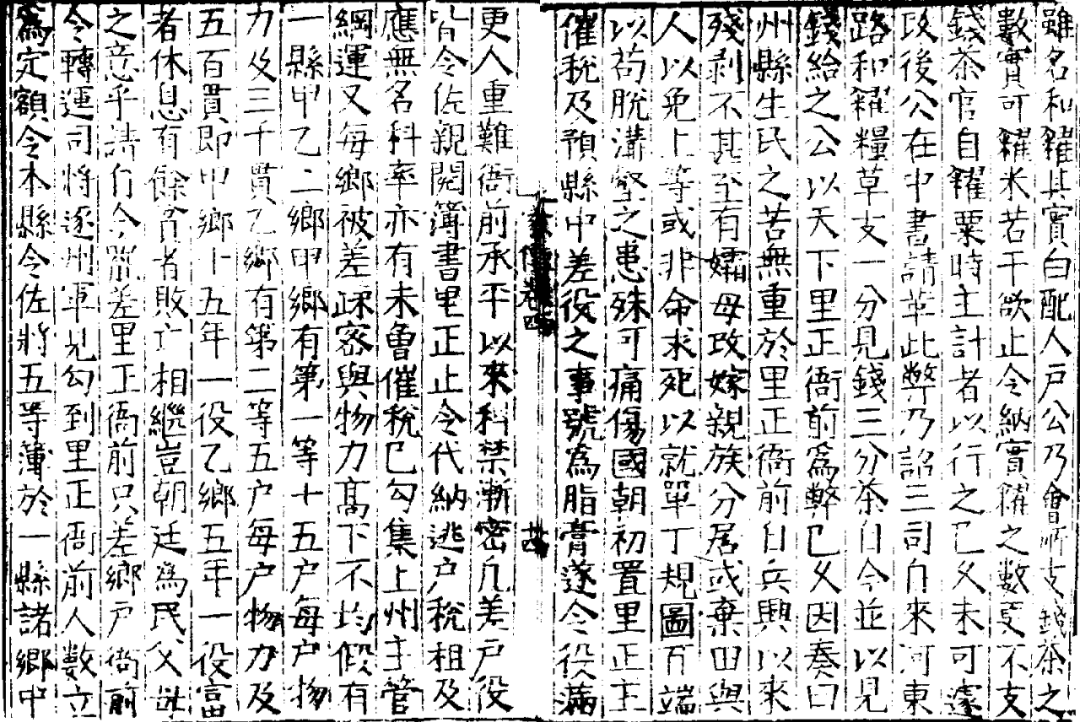 雖名和糴其實白配人戶公乃會所支錢茶之
數實可糴米若干欲止令納實糴之數不支
錢茶官自糴粟時主計者以行之已久未可遽
改後公在中書請革此弊乃詔三司自來河東
路和糴糧草支一分見錢三分茶自今並以見
錢給之公以天下里正衙前爲弊已久因奏曰
州縣生民之苦無重於里正衙前自兵興以來
殘剥不甚至有孀母改嫁親族分居或棄田與
人以免上等或非命求死以就單丁規圖百端
以苟脫溝壑之患殊可痛傷國朝初置里正主
催税及預縣中差役之事號爲脂膏遂令役滿
更入重難衙前承平以來科禁漸密凡差戶役
皆令佐親閱簿書里正止令代納逃户税租及
應無名科率亦有未曾催税已勾集上州主管
綱運又每鄉被差疎密與物力高下不均假有
一縣甲乙二鄉甲鄉有第一等十五户每户物
力及三千貫乙鄉有第二等五户每户物力及
五百貫即甲鄉十五年一役乙鄉五年一役富
者休息有餘貧者敗亡相繼豈朝廷爲民父母
之意乎請自今罷差里正衙前只差鄉户衙前
令轉運司將逐州軍見勾到里正衙前人數立
爲定額令本縣令佐將五等薄於一縣諸鄉中